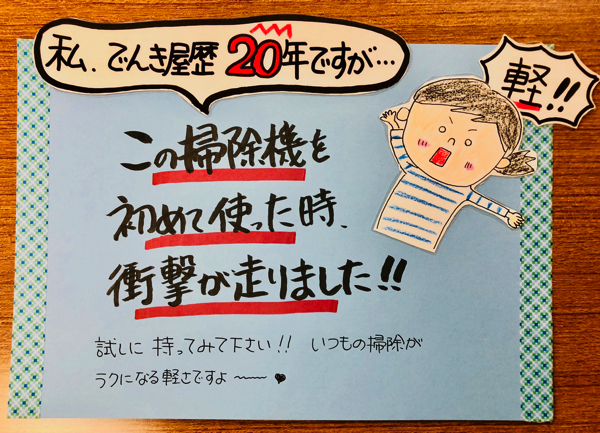 私、でんき屋歴20年ですが…
軽!!
この掃除機を
初めて使った時、
衝撃が走りました!!
試しに 持ってみて下さい!! いつもの掃除が
ラクになる軽さですよ 〜〜 ♥